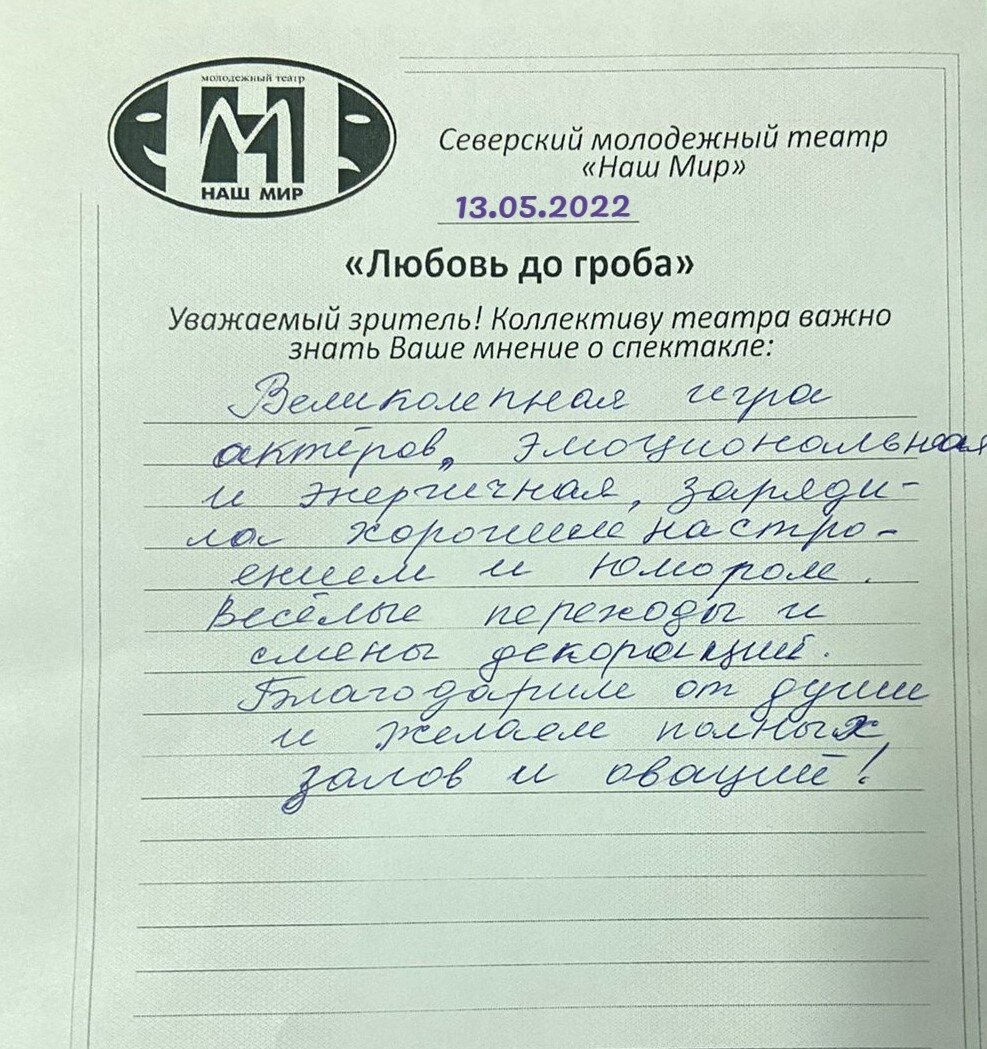 молодежный театр
НАШ МИР
Северский молодежный театр
«Наш Мир»
13.05.2022
«Любовь до гроба»
Уважаемый зритель! Коллективу театра важно
знать Ваше мнение о спектакле:
Великолепная игра
актёров, эмоциональная
и энергичная, заряди-
ла хорошим настро-
ением и юмором.
Весёлые переходы и
смены декораций.
Благодарим от души
и желаем полных
залов и оваций!